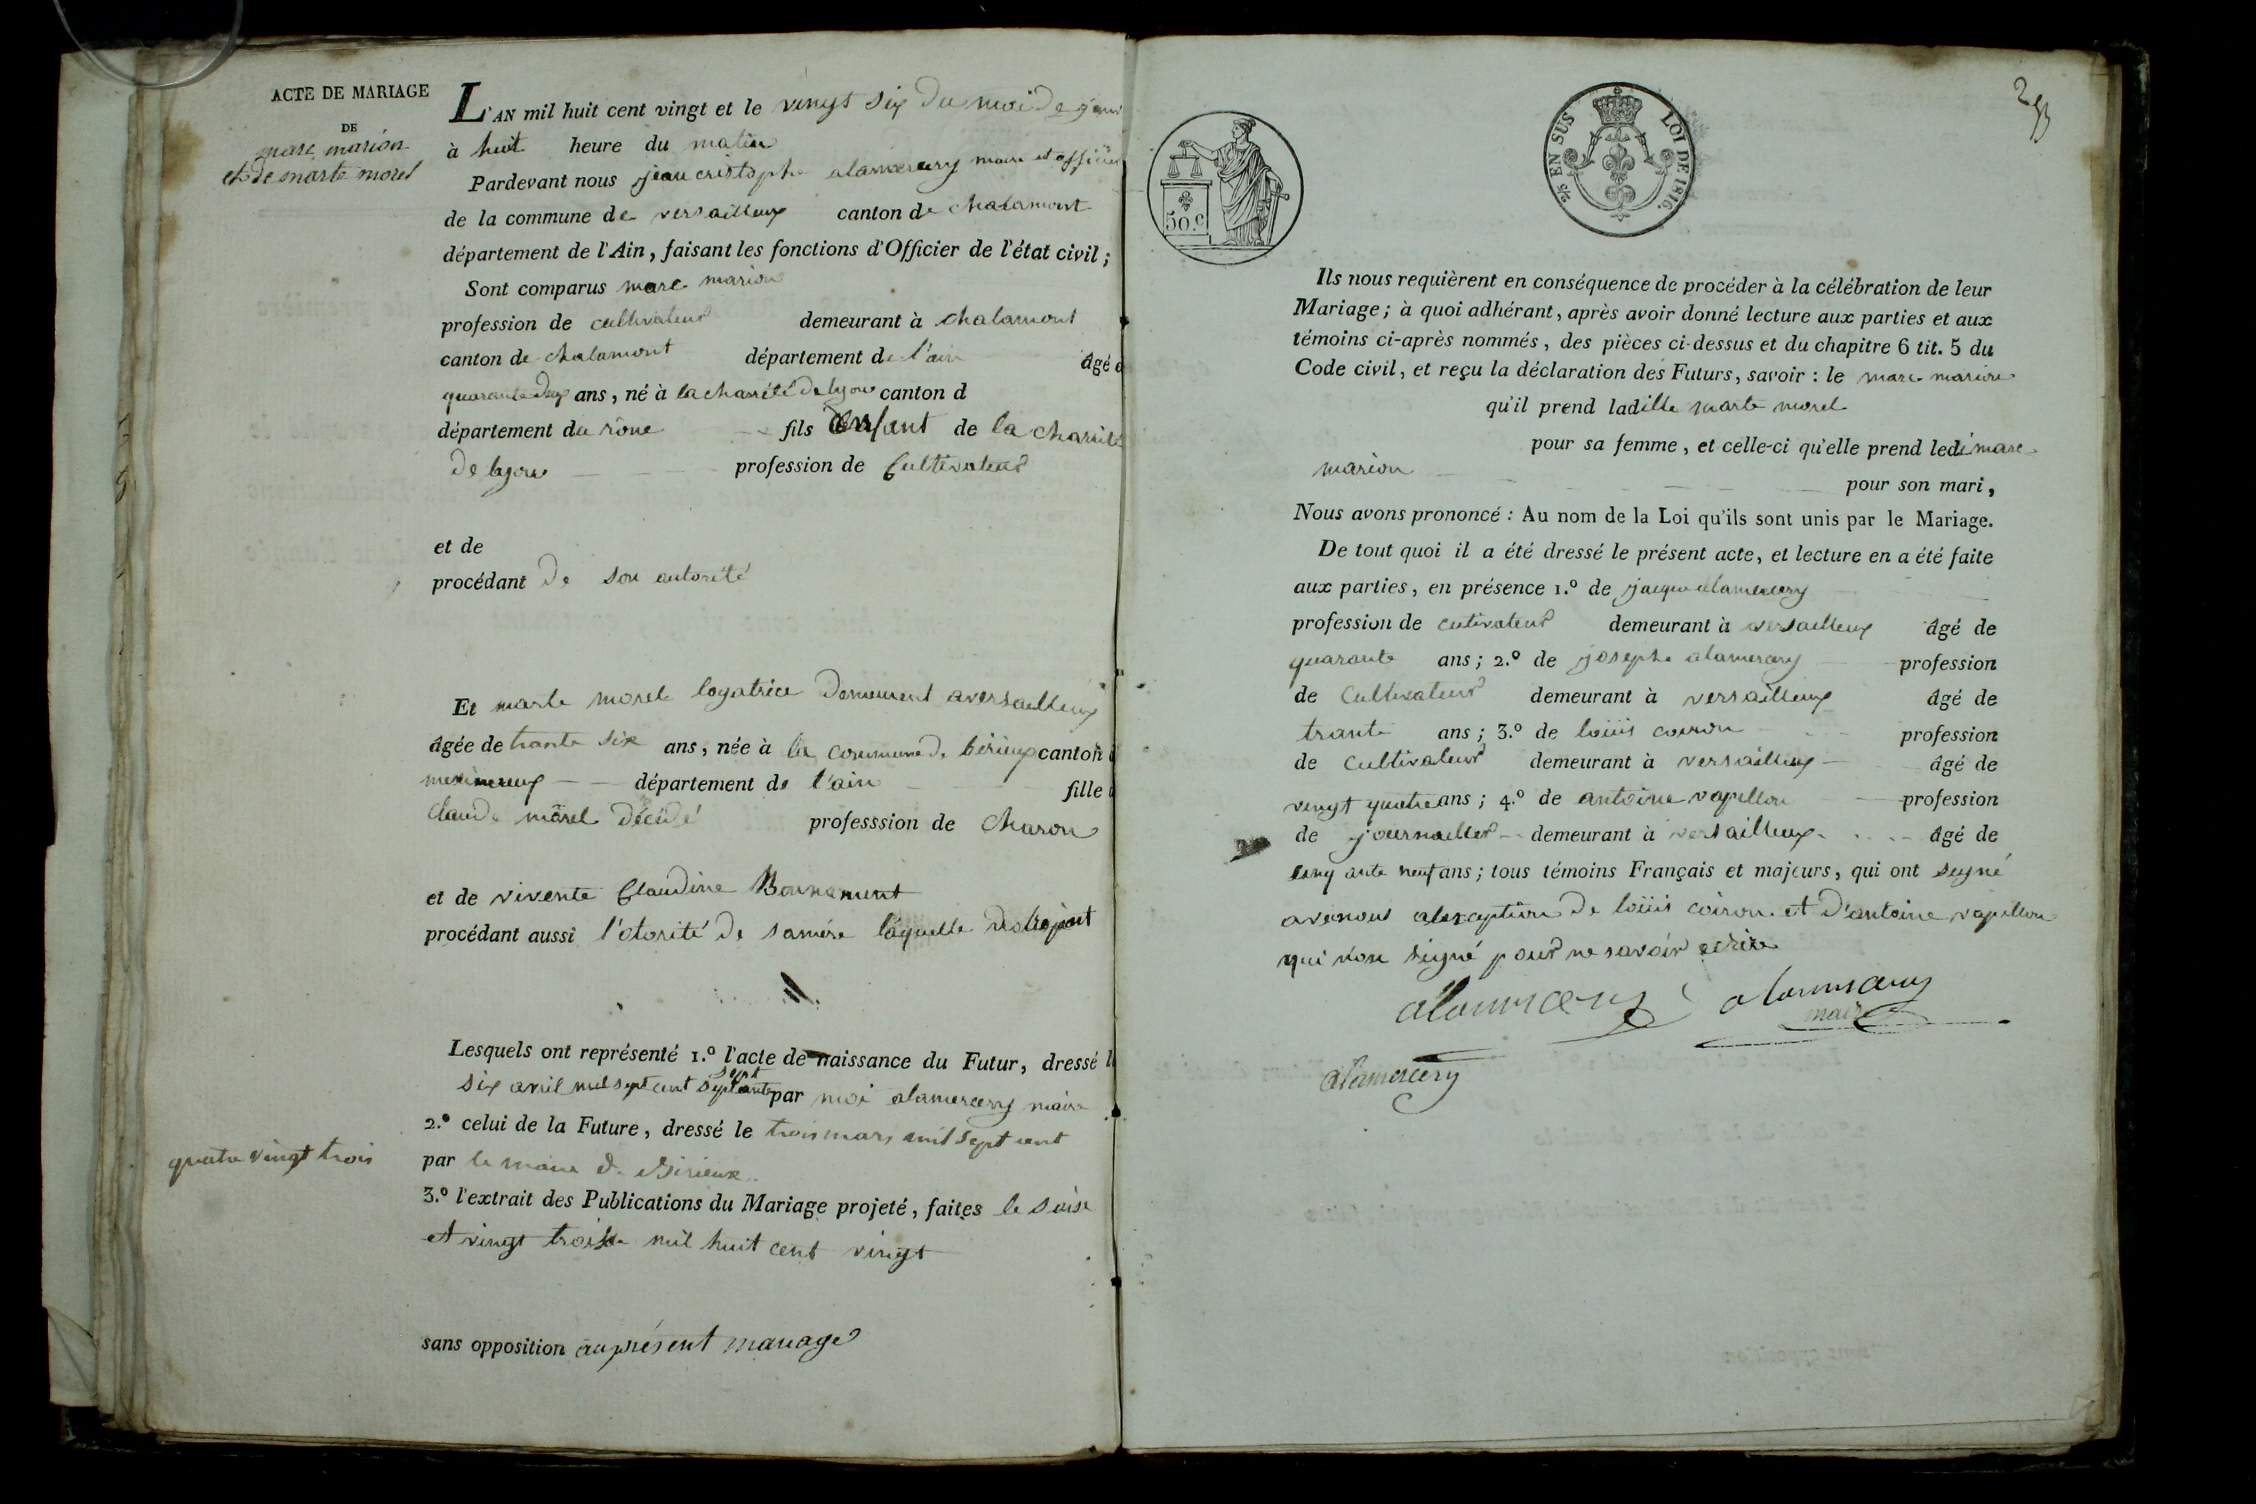 ACTE DE MARIAGE
DE
marc marion
et de marte morel
L'AN mil huit cent vingt et le vingt six du moi de janv
à huit heure du matin
Pardevant nous jean cristophe alamercery maire et officier
de la commune de versailleux canton de chalamont
département de l'Ain, faisant les fonctions d'Officier de l'état civil;
Sont comparus marc marion
profession de cultivateur demeurant à chalamont
canton de chalamont département de l'ain âgé d
quarante deux ans, né à la charrité de lyon canton d
département du rône fils Enfant de la charrité
de lyon profession de Cultivateur
et de
procédant de son autorité
Et marte morel logatrice demeurent aversailleux
âgée de trante six ans, née à la commune de birieux canton d
meximeux département de l'ain fille d
Claude morel décédé professsion de charon
et de vivente Claudine Bonnament
procédant aussi l'otorité de samère laquelle
Lesquels ont représenté 1.º l'acte de naissance du Futur, dressé l
six avril mil sept cent septante sept par moi alamercery maire
2.º celui de la Future, dressé le trois mars mil sept cent
quatre vingt trois
par le maire de Birieux
3.º l'extrait des Publications du Mariage projeté, faites le saise
et vingt trois mil huit cent vingt
sans opposition au présent mariage
50.c
2/5 EN SUS LOI DE 1816.
Ils nous requièrent en conséquence de procéder à la célébration de leur
Mariage; à quoi adhérant, après avoir donné lecture aux parties et aux
témoins ci-après nommés, des pièces ci-dessus et du chapitre 6 tit. 5 du
Code civil, et reçu la déclaration des Futurs, savoir: le marc marion
qu'il prend ladille marte morel
pour sa femme, et celle-ci qu'elle prend ledi marc
marion
pour son mari,
Nous avons prononcé: Au nom de la Loi qu'ils sont unis par le Mariage.
De tout quoi il a été dressé le présent acte, et lecture en a été faite
aux parties, en présence 1.º de jacque alamercery
profession de cutivateur demeurant à versailleux âgé de
quarante ans; 2.º de josephe alamercery profession
de Cultivateur demeurant à versailleux âgé de
trante ans; 3.º de loüis coiron profession
de Cultivateur demeurant à versailleux âgé de
vingt quatre ans; 4.º de antoine vapillon profession
de journailler demeurant à versailleux âgé de
cinq ante neuf ans; tous témoins Français et majeurs, qui ont signé
avenous alexception de loüis coiron et D'antoine vapillon
qui non signé pour ne savoir ecrire
alamercery alamercery
maire
alamercery